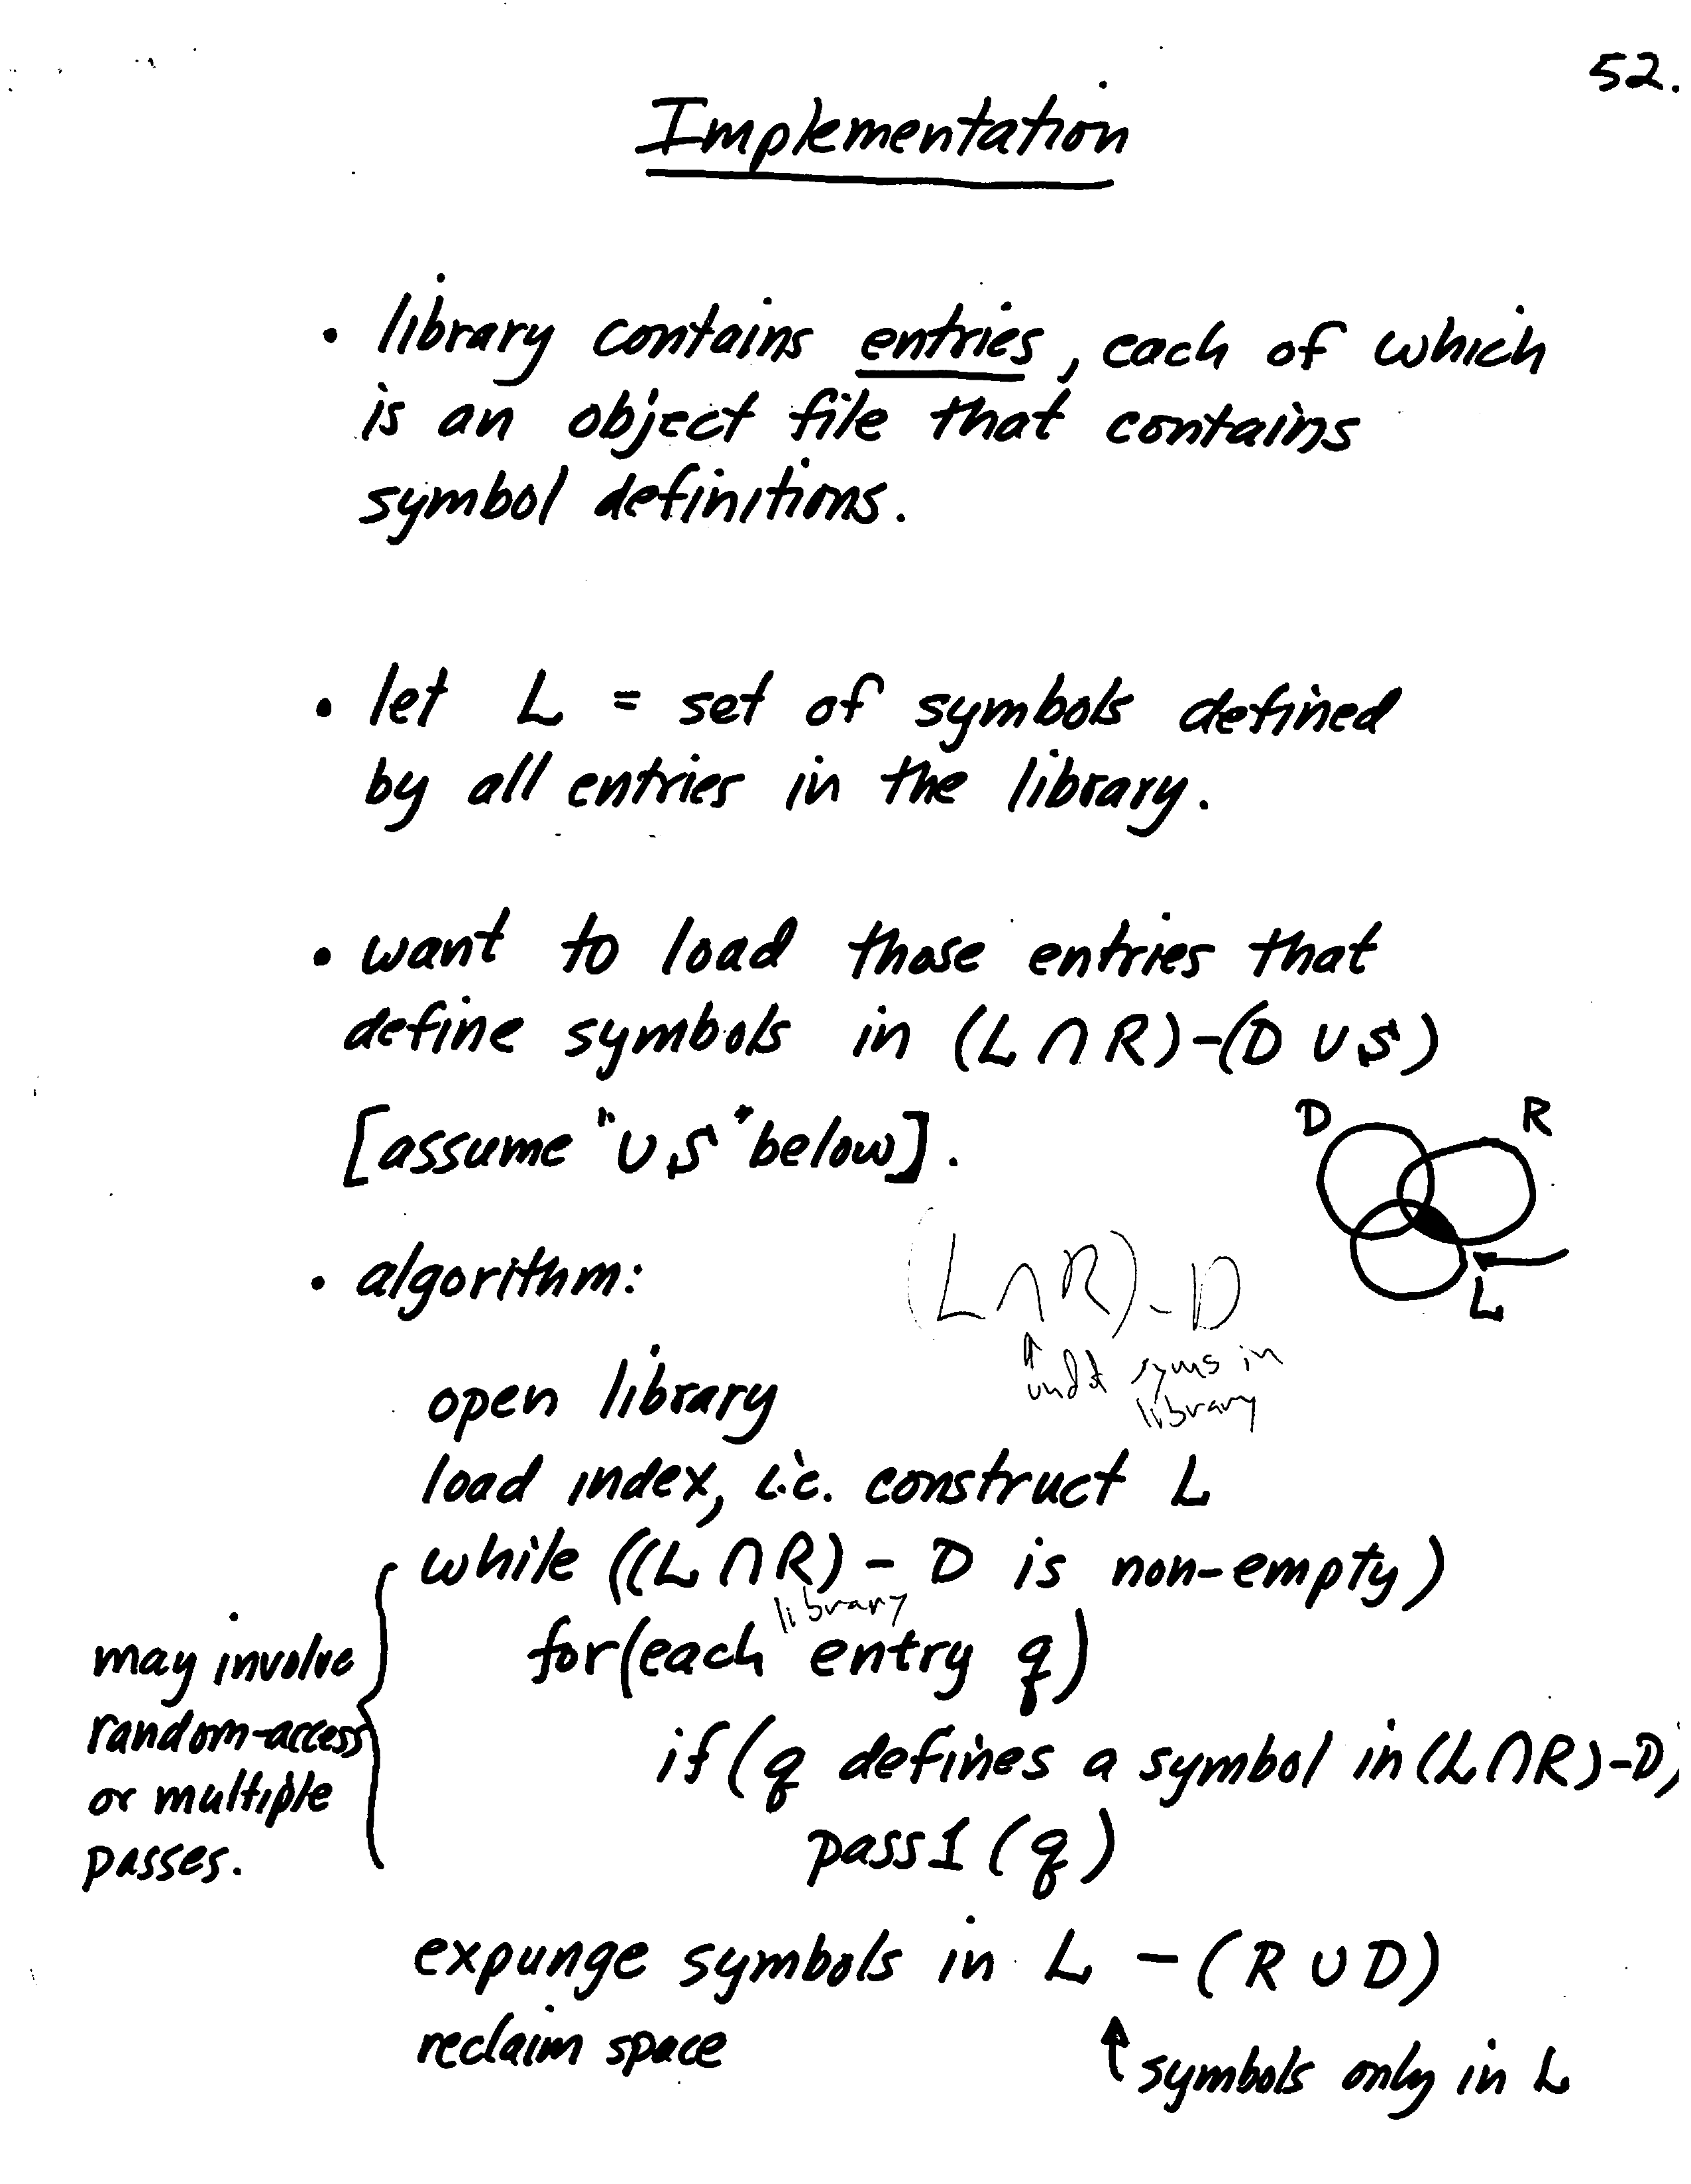 52.
Implementation
• library contains entries, each of which
is an object file that contains
symbol definitions.
• let L = set of symbols defined
by all entries in the library.
• want to load those entries that
define symbols in (L ∩ R)-(D ∪ S)
[assume "∪ S" below].
D R
L
• algorithm:
(L ∩ R) - D
↑
undef syms in
library
open library
load index, i.e. construct L
while ((L ∩ R) - D is non-empty)
library
for(each entry q)
if (q defines a symbol in (L ∩ R)-D)
pass1 (q)
may involve
random-access
or multiple
passes.
expunge symbols in L - (R ∪ D)
reclaim space
↑ symbols only in L